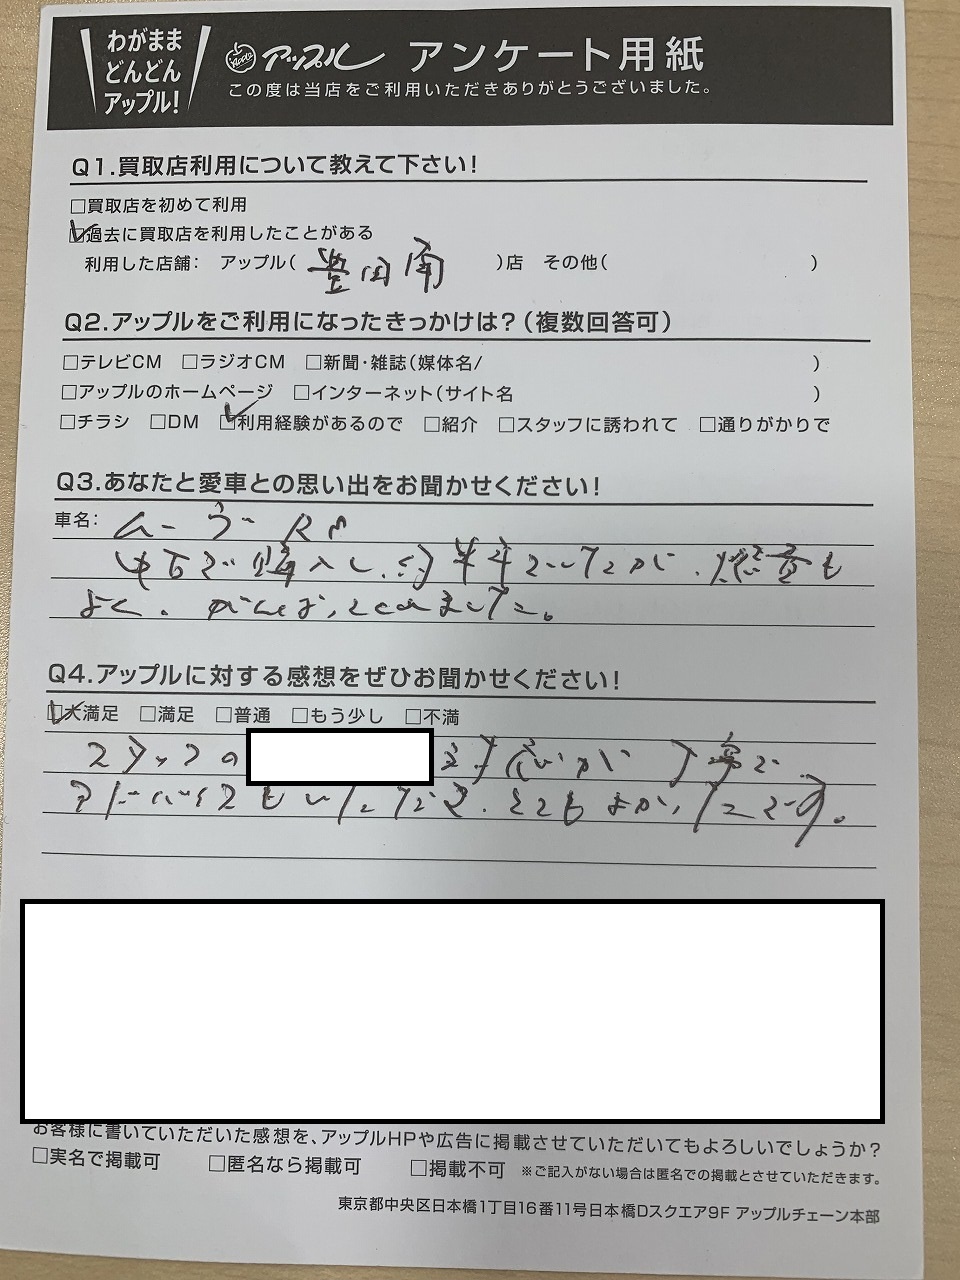 わがまま
どんどん
アップル!
Apple アップル アンケート用紙
この度は当店をご利用いただきありがとうございました。
Q1.買取店利用について教えて下さい!
□買取店を初めて利用
☑過去に買取店を利用したことがある
利用した店舗: アップル( 豊田南 )店 その他( )
Q2.アップルをご利用になったきっかけは?(複数回答可)
□テレビCM □ラジオCM □新聞・雑誌(媒体名/ )
□アップルのホームページ □インターネット(サイト名 )
□チラシ □DM ☑利用経験があるので □紹介 □スタッフに誘われて □通りがかりで
Q3.あなたと愛車との思い出をお聞かせください!
車名: ムーヴ
中古で購入し、約半年でしたが、燃費も
よく、がんばってくれました。
Q4.アップルに対する感想をぜひお聞かせください!
☑大満足 □満足 □普通 □もう少し □不満
スタッフの 対応が丁寧で
アドバイスもいただき、とてもよかったです。
お客様に書いていただいた感想を、アップルHPや広告に掲載させていただいてもよろしいでしょうか?
□実名で掲載可 □匿名なら掲載可 □掲載不可 ※ご記入がない場合は匿名での掲載とさせていただきます。
東京都中央区日本橋1丁目16番11号日本橋Dスクエア9F アップルチェーン本部